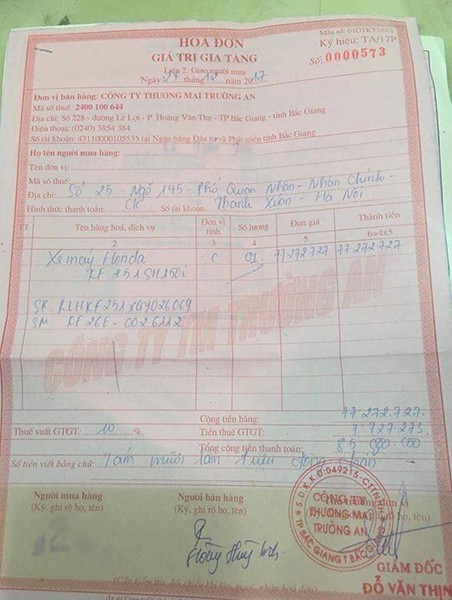 HÓA ĐƠN
GIÁ TRỊ GIA TĂNG
Liên 2: Giao người mua
Ngày 27 tháng 12 / 2017
Mẫu số: 01GTKT3/001
Ký hiệu: TA/17P
Số: 0000573
Đơn vị bán hàng: CÔNG TY THƯƠNG MẠI TRƯỜNG AN
Mã số thuế: 2400 100 644
Địa chỉ: Số 228 - đường Lê Lợi - P. Hoàng Văn Thụ - TP Bắc Giang - tỉnh Bắc Giang
Điện thoại: (0240) 3854 384
Số tài khoản: 43110000105535 tại Ngân hàng Đầu tư và Phát triển tỉnh Bắc Giang
Họ tên người mua hàng:
Tên đơn vị:
Mã số thuế:
Địa chỉ: Số 25 - Ngõ 145 - Phố Quan Nhân - Nhân Chính -
Thanh Xuân - Hà Nội
Hình thức thanh toán: CK Số tài khoản:
TT Tên hàng hoá, dịch vụ Đơn vị tính Số lượng Đơn giá Thành tiền
2 3 4 5 6=4x5
Xe máy Honda C 01 77.272.727 77.272.727
KF 251 SH150i
SK: RLHKF251
SM: KF26E - 0026112
CÔNG TY TM TRƯỜNG AN
Cộng tiền hàng: 77.272.727
Thuế suất GTGT: 10 % Tiền thuế GTGT: 7 727 273
Tổng cộng tiền thanh toán: 85 000 000
Số tiền viết bằng chữ: Tám mươi
Người mua hàng
(Ký, ghi rõ họ, tên)
Người bán hàng
(Ký, ghi rõ họ, tên)
CÔNG TY
THƯƠNG MẠI
TRƯỜNG AN
GIÁM ĐỐC
ĐỖ VĂN THỊN